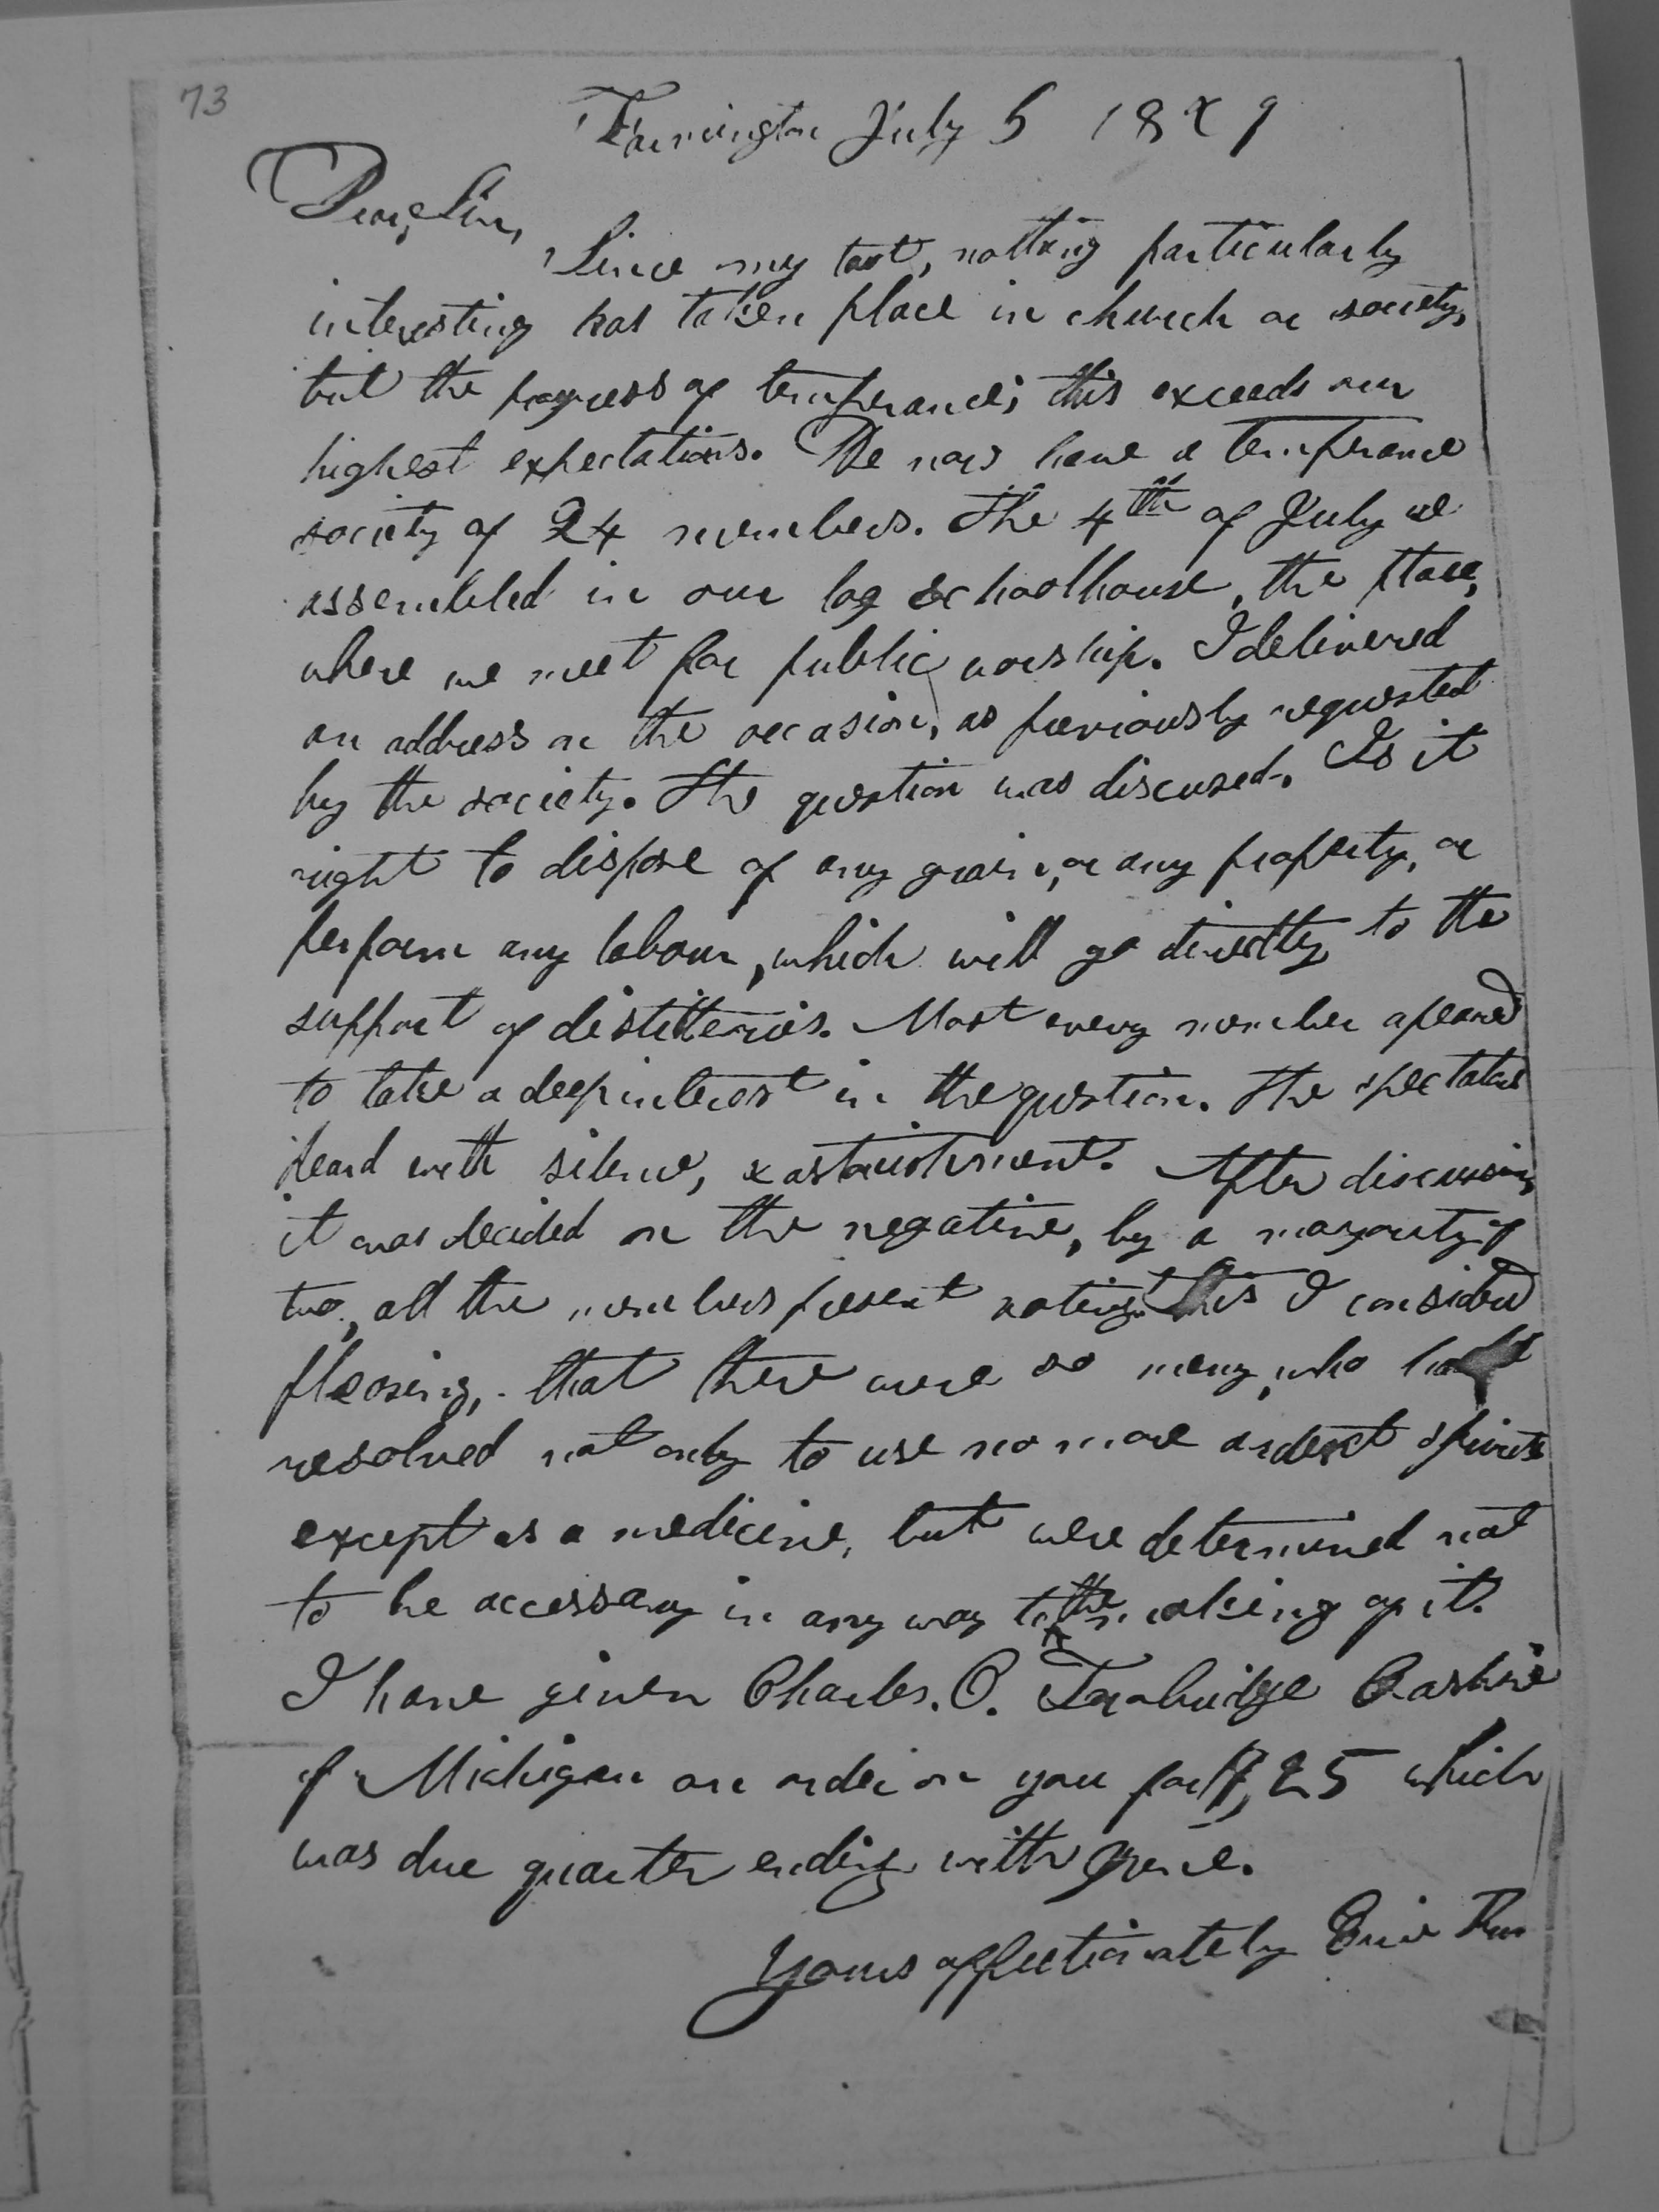 73
Farmington July 5 1829
Dear Sir,
Since my last, nothing particularly
interesting has taken place in church or society,
but the progress of temperance; this exceeds our
highest expectations. We now have a temperance
society of 24 members. The 4th of July we
assembled in our log schoolhouse, the place,
where we meet for public worship. I delivered
an address on the occasion, as previously requested
by the society. The question was discused. Is it
right to dispose of any grain, or any property, or
perform any labour, which will go directly to the
support of distilleries. Most every member apeared
to take a deep interest in the question. The spectators
heard with silence, & astonishment. After discussion,
it was decided in the negative, by a majority of
two, all the members present voting. This I considered
pleasing, that there were so many, who had
resolved not only to use no more ardent spirits
except as a medicine, but were determined not
to be accessary in any way to the making of it.
I have given Charles. C. Trobridge Cashire
of Michigan an order on you for 25 which
was due quarter ending with June.
Yours affectionately Eri